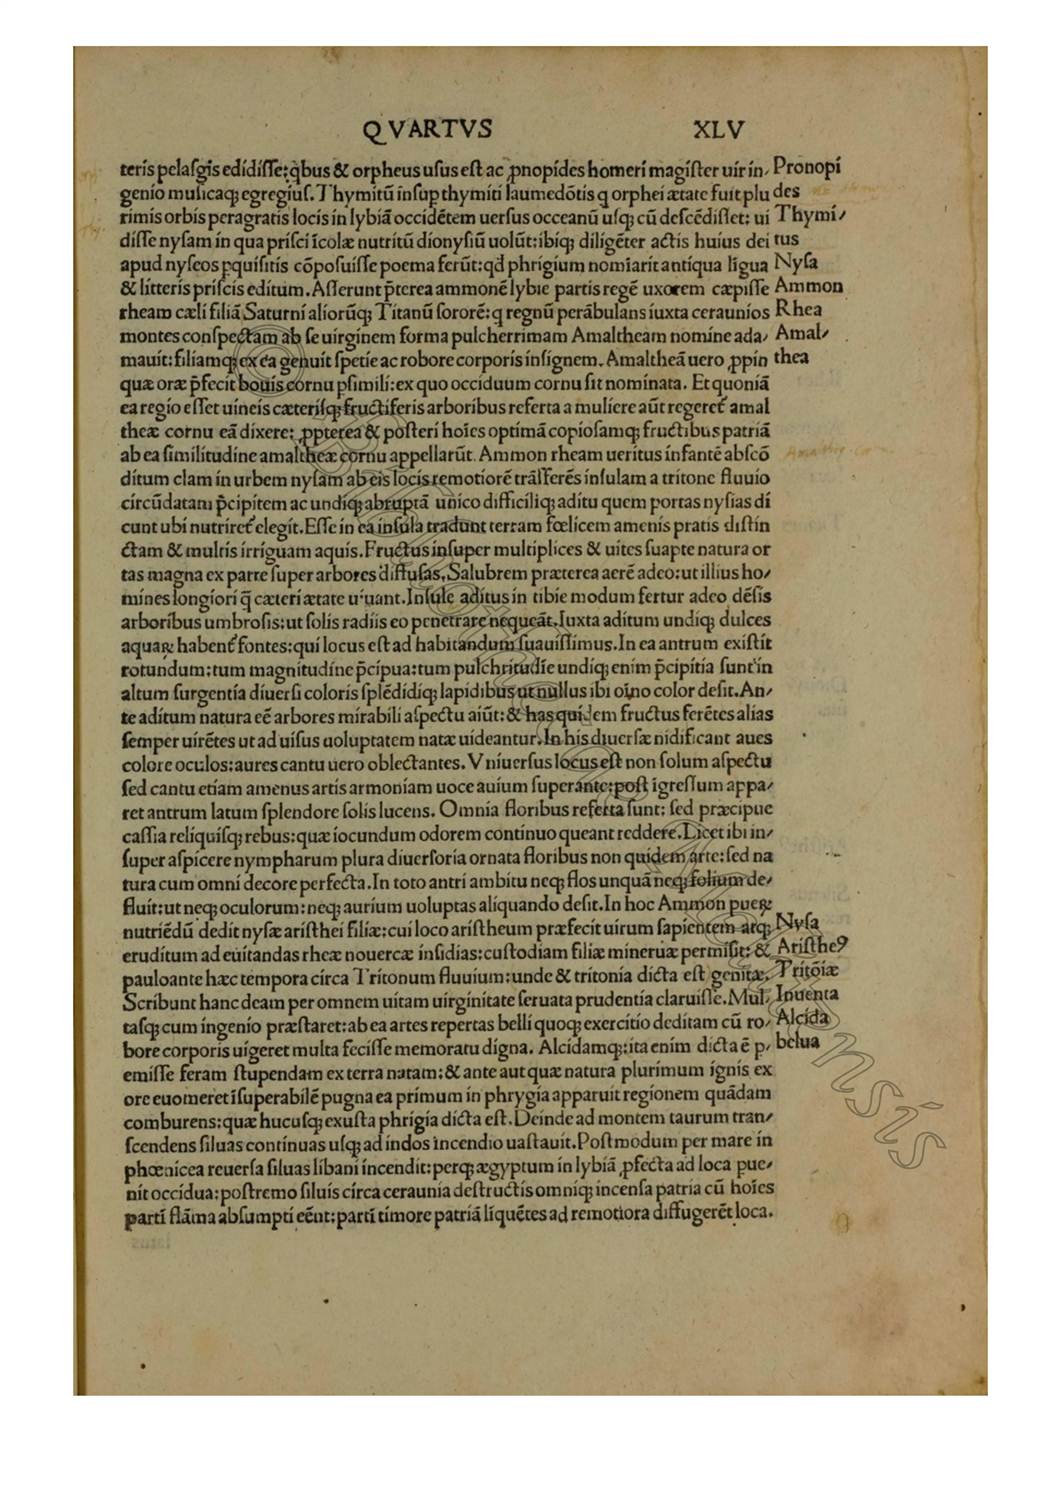 QVARTVS XLV
teris pelasgis edidisse: qbus & orpheus usus est ac ꝓnopides homeri magister uir in/ Pronopi
genio musicaqꝫ egregius. Thymitū insuꝑ thymiti laumedōtis q orphei ætate fuit plu des
rimis orbis peragratis locis in lybiā occidētem uersus occeanū usqꝫ cū descēdisset: ui Thymi/
disse nysam in qua prisci īcolæ nutritū dionysiū uolūt: ibiqꝫ diligēter actis huius dei tus
apud nyseos ꝑquisitis cōposuisse poema ferūt: qđ phrigium nomiarit antiqua līgua Nysa
& litteris priscis editum. Asserunt p̄terea ammonē lybie partis regē uxorem cæpisse Ammon
rheam cæli filiā Saturni aliorūqꝫ Titanū sororē: q regnū perābulans iuxta ceraunios Rhea
montes conspectam ab se uirginem forma pulcherrimam Amaltheam nomine ada/ Amal/
mauit: filiamqꝫ ex ea genuit spetie ac robore corporis insignem. Amaltheā uero ꝓpin thea
quæ oræ p̄fecit bouis cornu ꝑsimili: ex quo occiduum cornu sit nominata. Et quoniā
ea regio esset uineis cæterisqꝫ fructiferis arboribus referta a muliere aūt regeret̄ amal
theæ cornu eā dixere: ꝓpterea & posteri hoīes optimā copiosamqꝫ fructibus patriā
ab ea similitudine amaltheæ cornu appellarūt. Ammon rheam ueritus infantē abscō
ditum clam in urbem nysam ab eis locis remotiorē trāsferēs insulam a tritone fluuio
circūdatam p̄cipitem ac undiqꝫ abruptā unico difficiliqꝫ aditu quem portas nysias di
cunt ubi nutriret̄ elegit. Esse in ea insula tradunt terram fœlicem amenis pratis distin
ctam & multis irriguam aquis. Fructus insuper multiplices & uites suapte natura or
tas magna ex parte super arbores diffusas. Salubrem præterea aerē adeo: ut illius ho/
mines longiori q̄ cæteri ætate uiuant. Insule aditus in tibie modum fertur adeo dēsis
arboribus umbrosis: ut solis radiis eo penetrare nequeāt. Iuxta aditum undiqꝫ dulces
aquaꝝ habent̄ fontes: qui locus est ad habitandum suauissimus. In ea antrum existit
rotundum: tum magnitudine p̄cipua: tum pulchritudīe undiqꝫ enim p̄cipitia sunt in
altum surgentia diuersi coloris splēdidiqꝫ lapidibus ut nullus ibi oīno color desit. An/
te aditum natura eē arbores mirabili aspectu aiūt: & has quidem fructus ferētes alias
semper uirētes ut ad uisus uoluptatem natæ uideantur. In his diuersæ nidificant aues
colore oculos: aures cantu uero oblectantes. Vniuersus locus est non solum aspectu
sed cantu etiam amenus artis armoniam uoce auium superante: post īgressum appa/
ret antrum latum splendore solis lucens. Omnia floribus referta sunt: sed præcipue
cassia reliquisqꝫ rebus: quæ iocundum odorem continuo queant reddere. Licet ibi in/
super aspicere nympharum plura diuersoria ornata floribus non quidem arte: sed na
tura cum omni decore perfecta. In toto antri ambitu neqꝫ flos unquā neqꝫ folium de/
fluit: ut neqꝫ oculorum: neqꝫ aurium uoluptas aliquando desit. In hoc Ammon pueꝝ
nutriēdū dedit nysæ aristhei filiæ: cui loco aristheum præfecit uirum sapientem atqꝫ Nysa
eruditum ad euitandas rheæ nouercæ insidias: custodiam filiæ mineruæ permisit: & Aristheꝰ
pauloante hæc tempora circa Tritonum fluuium: unde & tritonia dicta est genitæ. Tritōiæ
Scribunt hanc deam per omnem uitam uirginitate seruata prudentia claruisse. Mul/ Inuenta
tasqꝫ cum ingenio præstaret: ab ea artes repertas belli quoqꝫ exercitio deditam cū ro/ Alcida
bore corporis uigeret multa fecisse memoratu digna. Alcidamqꝫ: ita enim dicta ē ꝑ/ belua
emisse feram stupendam ex terra natam: & ante aut quæ natura plurimum ignis ex
ore euomeret īsuperabilē pugna ea primum in phrygia apparuit regionem quādam
comburens: quæ hucusqꝫ exusta phrigia dicta est. Deinde ad montem taurum tran/
scendens siluas continuas usqꝫ ad indos incendio uastauit. Postmodum per mare in
phœnicea reuersa siluas libani incendit: perqꝫ ægyptum in lybiā ꝓfecta ad loca pue/
nit occidua: postremo siluis circa ceraunia destructis omniqꝫ incensa patria cū hoīes
partī flāma absumpti eēnt: partī timore patriā līquētes ad remotiora diffugerēt loca.